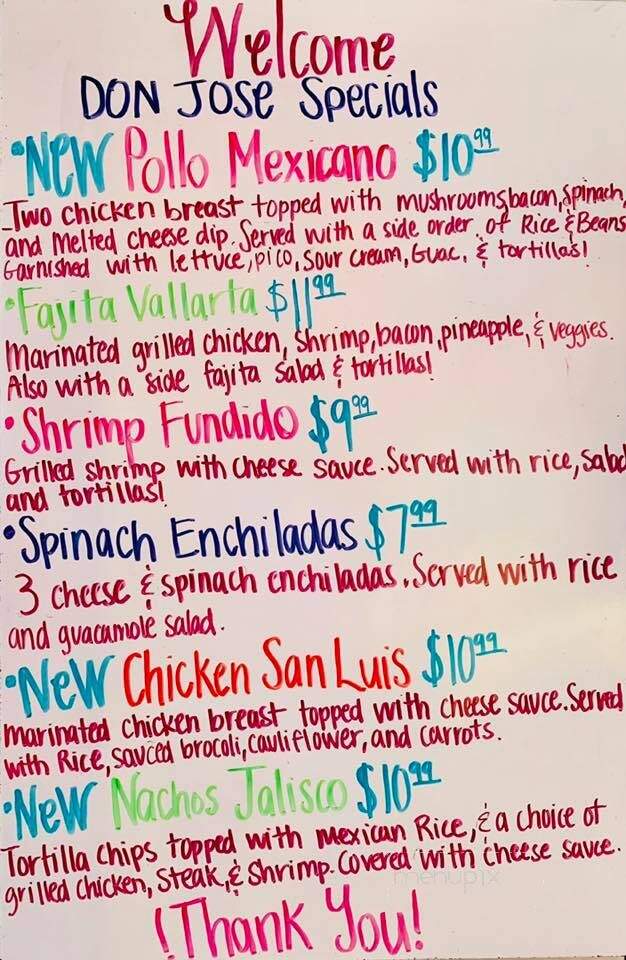 Welcome
DON JOSE Specials
•New Pollo Mexicano $10.99
Two chicken breast topped with mushrooms, bacon, spinach,
and Melted cheese dip. Served with a side order of Rice & Beans
Garnished with lettuce, pico, sour cream, Guac, & tortillas!
•Fajita Vallarta $11.99
Marinated grilled chicken, shrimp, bacon, pineapple, & veggies.
Also with a side fajita salad & tortillas!
•Shrimp Fundido $9.99
Grilled shrimp with cheese sauce. Served with rice, Salad
and tortillas!
•Spinach Enchiladas $7.99
3 cheese & spinach enchiladas. Served with rice
and guacamole salad.
•New Chicken San Luis $10.99
marinated chicken breast topped with cheese sauce. Served
with Rice, sauced brocoli, cauliflower, and carrots.
•New Nachos Jalisco $10.99
Tortilla chips topped with Mexican Rice, & a choice of
grilled chicken, steak, & shrimp. Covered with cheese sauce.
menupix
!Thank You!